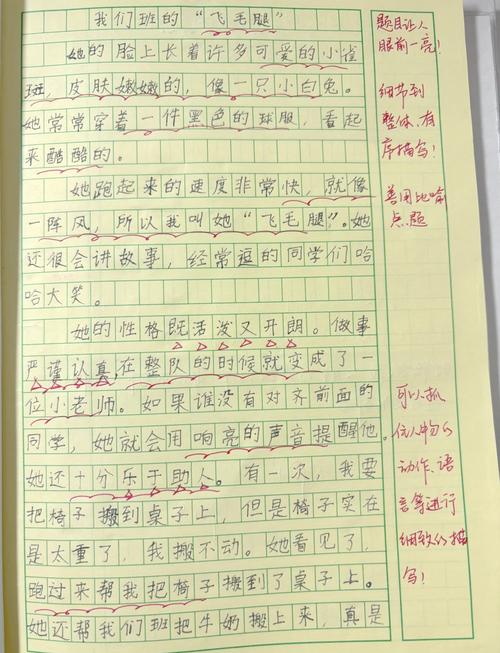 我们班的“飞毛腿”
她的脸上长着许多可爱的小雀
斑，皮肤嫩嫩的，像一只小白兔。
她常常穿着一件黑色的球服，看起
来酷酷的。
她跑起来的速度非常快，就像
一阵风，所以我叫她“飞毛腿”。她
还很会讲故事，经常逗的同学们哈
哈大笑。
她的性格既活泼又开朗。做事
严谨认真，在整队的时候就变成了一
位小老师。如果谁没有对齐前面的
同学，她就会用响亮的声音提醒他。
她还十分乐于助人。有一次，我要
把椅子搬到桌子上，但是椅子实在
是太重了，我搬不动。她看见了，
跑过来帮我把椅子搬到了桌子上。
她还帮我们班把牛奶搬上来，真是
题目让人
眼前一亮！
细节到
整体，有
序描写！
善用比喻
点题
可以抓
住人物的
动作、语
言等进行
细致的描
写！